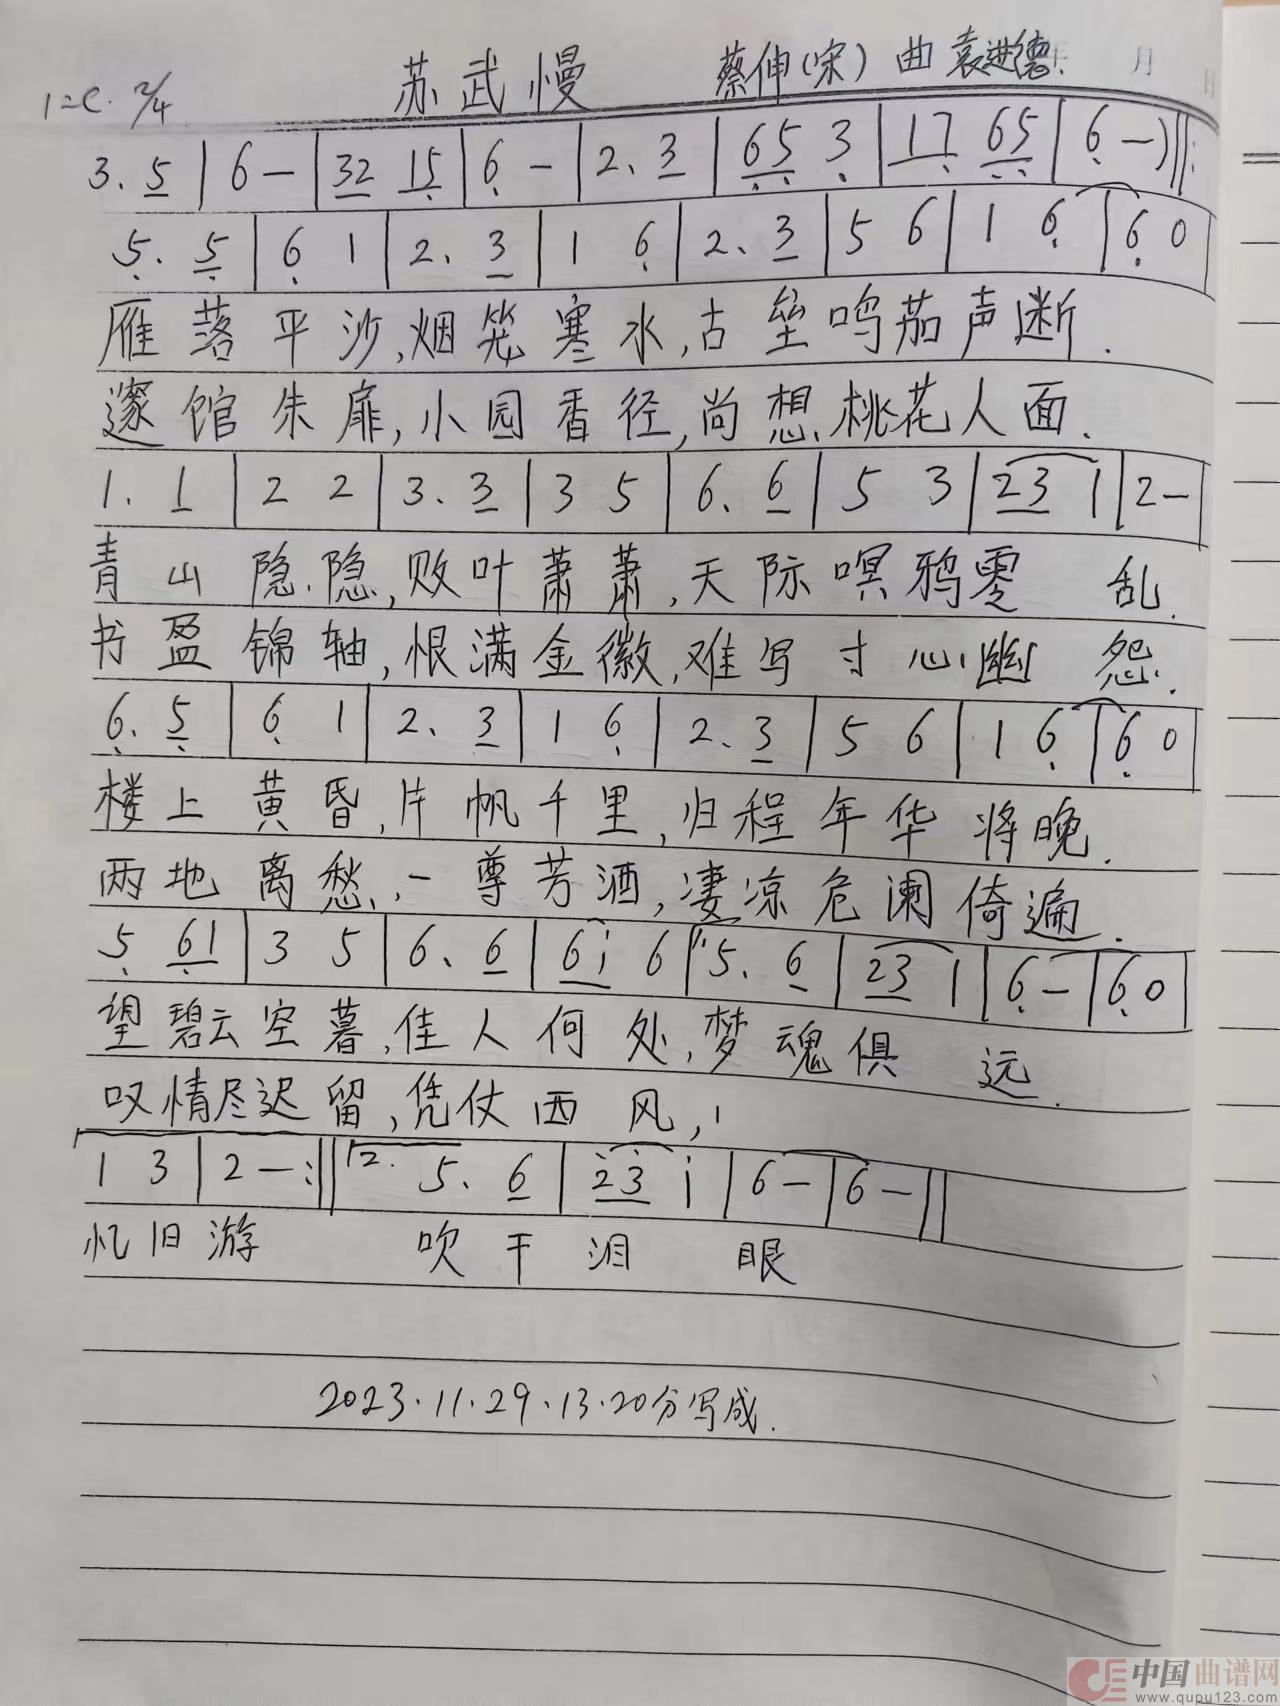 1=C. 2/4 苏武慢 蔡伸(宋) 曲 袁进德 年 月 日
3. 5 | 6 — | 32 15 | 6 — | 2. 3 | 65 3 | 17 65 | 6 —) ‖:
5. 5 | 6 1 | 2. 3 | 1 6 | 2. 3 | 5 6 | 1 6 | 6 0
雁落平沙,烟笼寒水,古垒鸣茄声断.
邃馆朱扉,小园香径,尚想桃花人面.
1. 1 | 2 2 | 3. 3 | 3 5 | 6. 6 | 5 3 | 23 1 | 2 —
青山隐隐,败叶萧萧,天际暝鸦零乱.
书盈锦轴,恨满金徽,难写寸心幽怨.
6. 5 | 6 1 | 2. 3 | 1 6 | 2. 3 | 5 6 | 1 6 | 6 0
楼上黄昏,片帆千里,归程年华将晚.
两地离愁,一尊芳酒,凄凉危阑倚遍.
5 61 | 3 5 | 6. 6 | 6i 6 | 5. 6 | 23 1 | 6 — | 6 0
望碧云空暮,佳人何处,梦魂俱远.
叹情尽迟留,凭仗西风,
1 3 | 2 — :‖ 2. 5. 6 | 23 i | 6 — | 6 — ‖
忆旧游 吹干泪眼
2023.11.29.13.20分写成.
中国曲谱网
www.qupu123.com